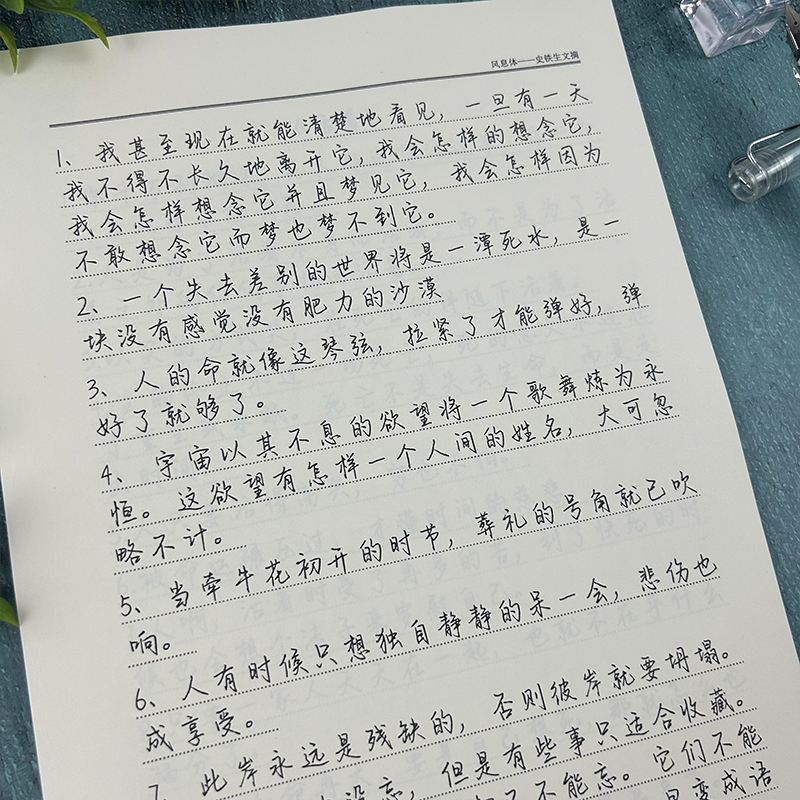 风息体——史铁生文摘
1、我甚至现在就能清楚地看见，一旦有一天
我不得不长久地离开它，我会怎样的想念它，
我会怎样想念它并且梦见它，我会怎样因为
不敢想念它而梦也梦不到它。
2、一个失去差别的世界将是一潭死水，是一
块没有感觉没有肥力的沙漠
3、人的命就像这琴弦，拉紧了才能弹好，弹
好了就够了。
4、宇宙以其不息的欲望将一个歌舞炼为永
恒。这欲望有怎样一个人间的姓名，大可忽
略不计。
5、当牵牛花初开的时节，葬礼的号角就已吹
响。
6、人有时候只想独自静静的呆一会，悲伤也
成享受。
7、此岸永远是残缺的，否则彼岸就要坍塌。
没忘，但是有些事只适合收藏。
不能忘。它们不能
变成语